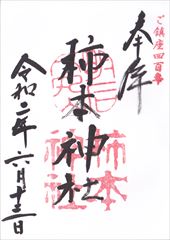 ご鎮座四百年
奉拝
柿本神社
柿本
神社
令和二年六月十三日